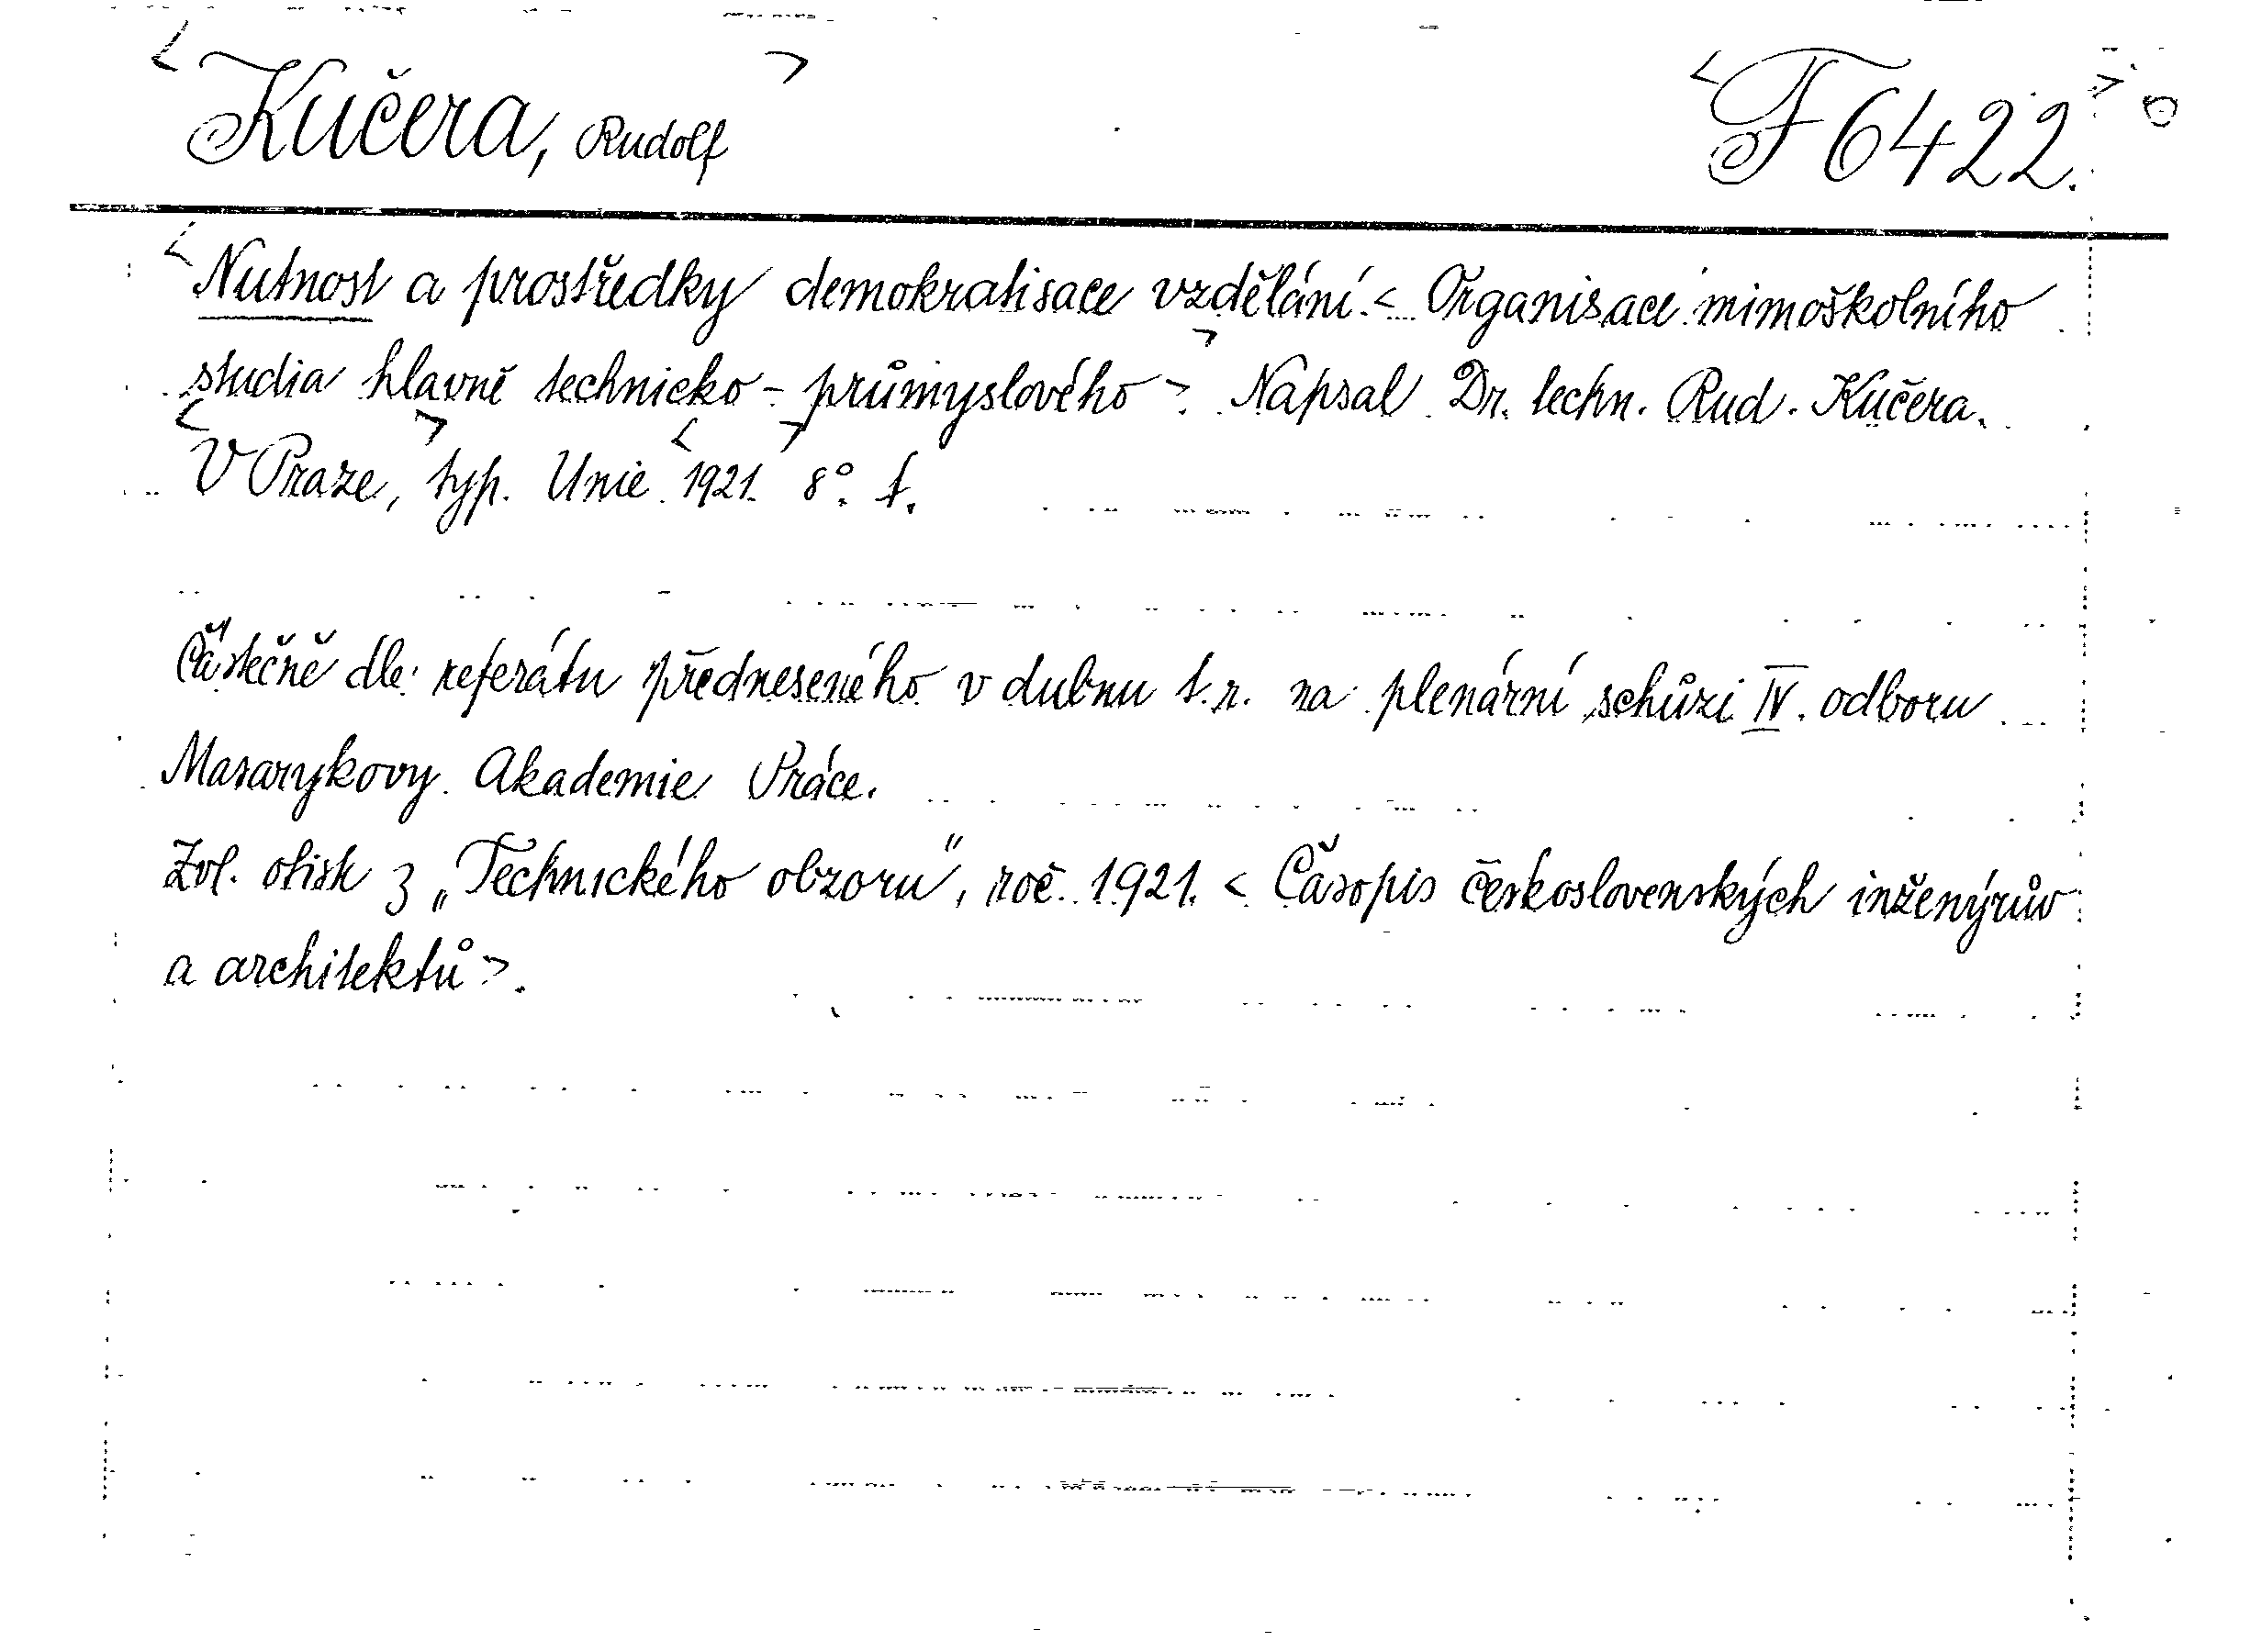 <Kučera, Rudolf>
<F 6422.>
<Nutnost a prostředky demokratisace vzdělání. < Organisace mimoškolního
studia hlavně technicko-průmyslového >.> Napsal Dr. techn. Rud. Kučera.
<V Praze,> typ. Unie <1921.> 8°. t.
Částečně dle referátu předneseného v dubnu t.r. na plenární schůzi IV. odboru
Masarykovy Akademie Práce.
Zvl. otisk z „Technického obzoru", roč. 1921. < Časopis československých inženýrův
a architektů >.